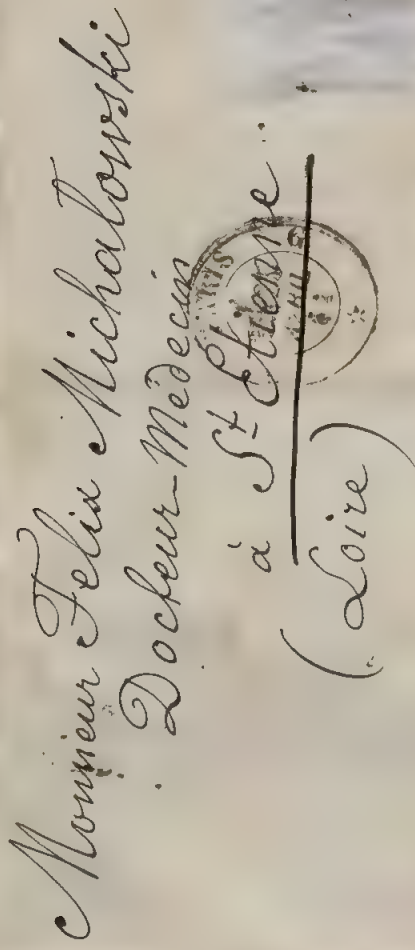 Monsieur Felix Michałowski
Docteur-Médecin
à St Etienne.
(Loire)